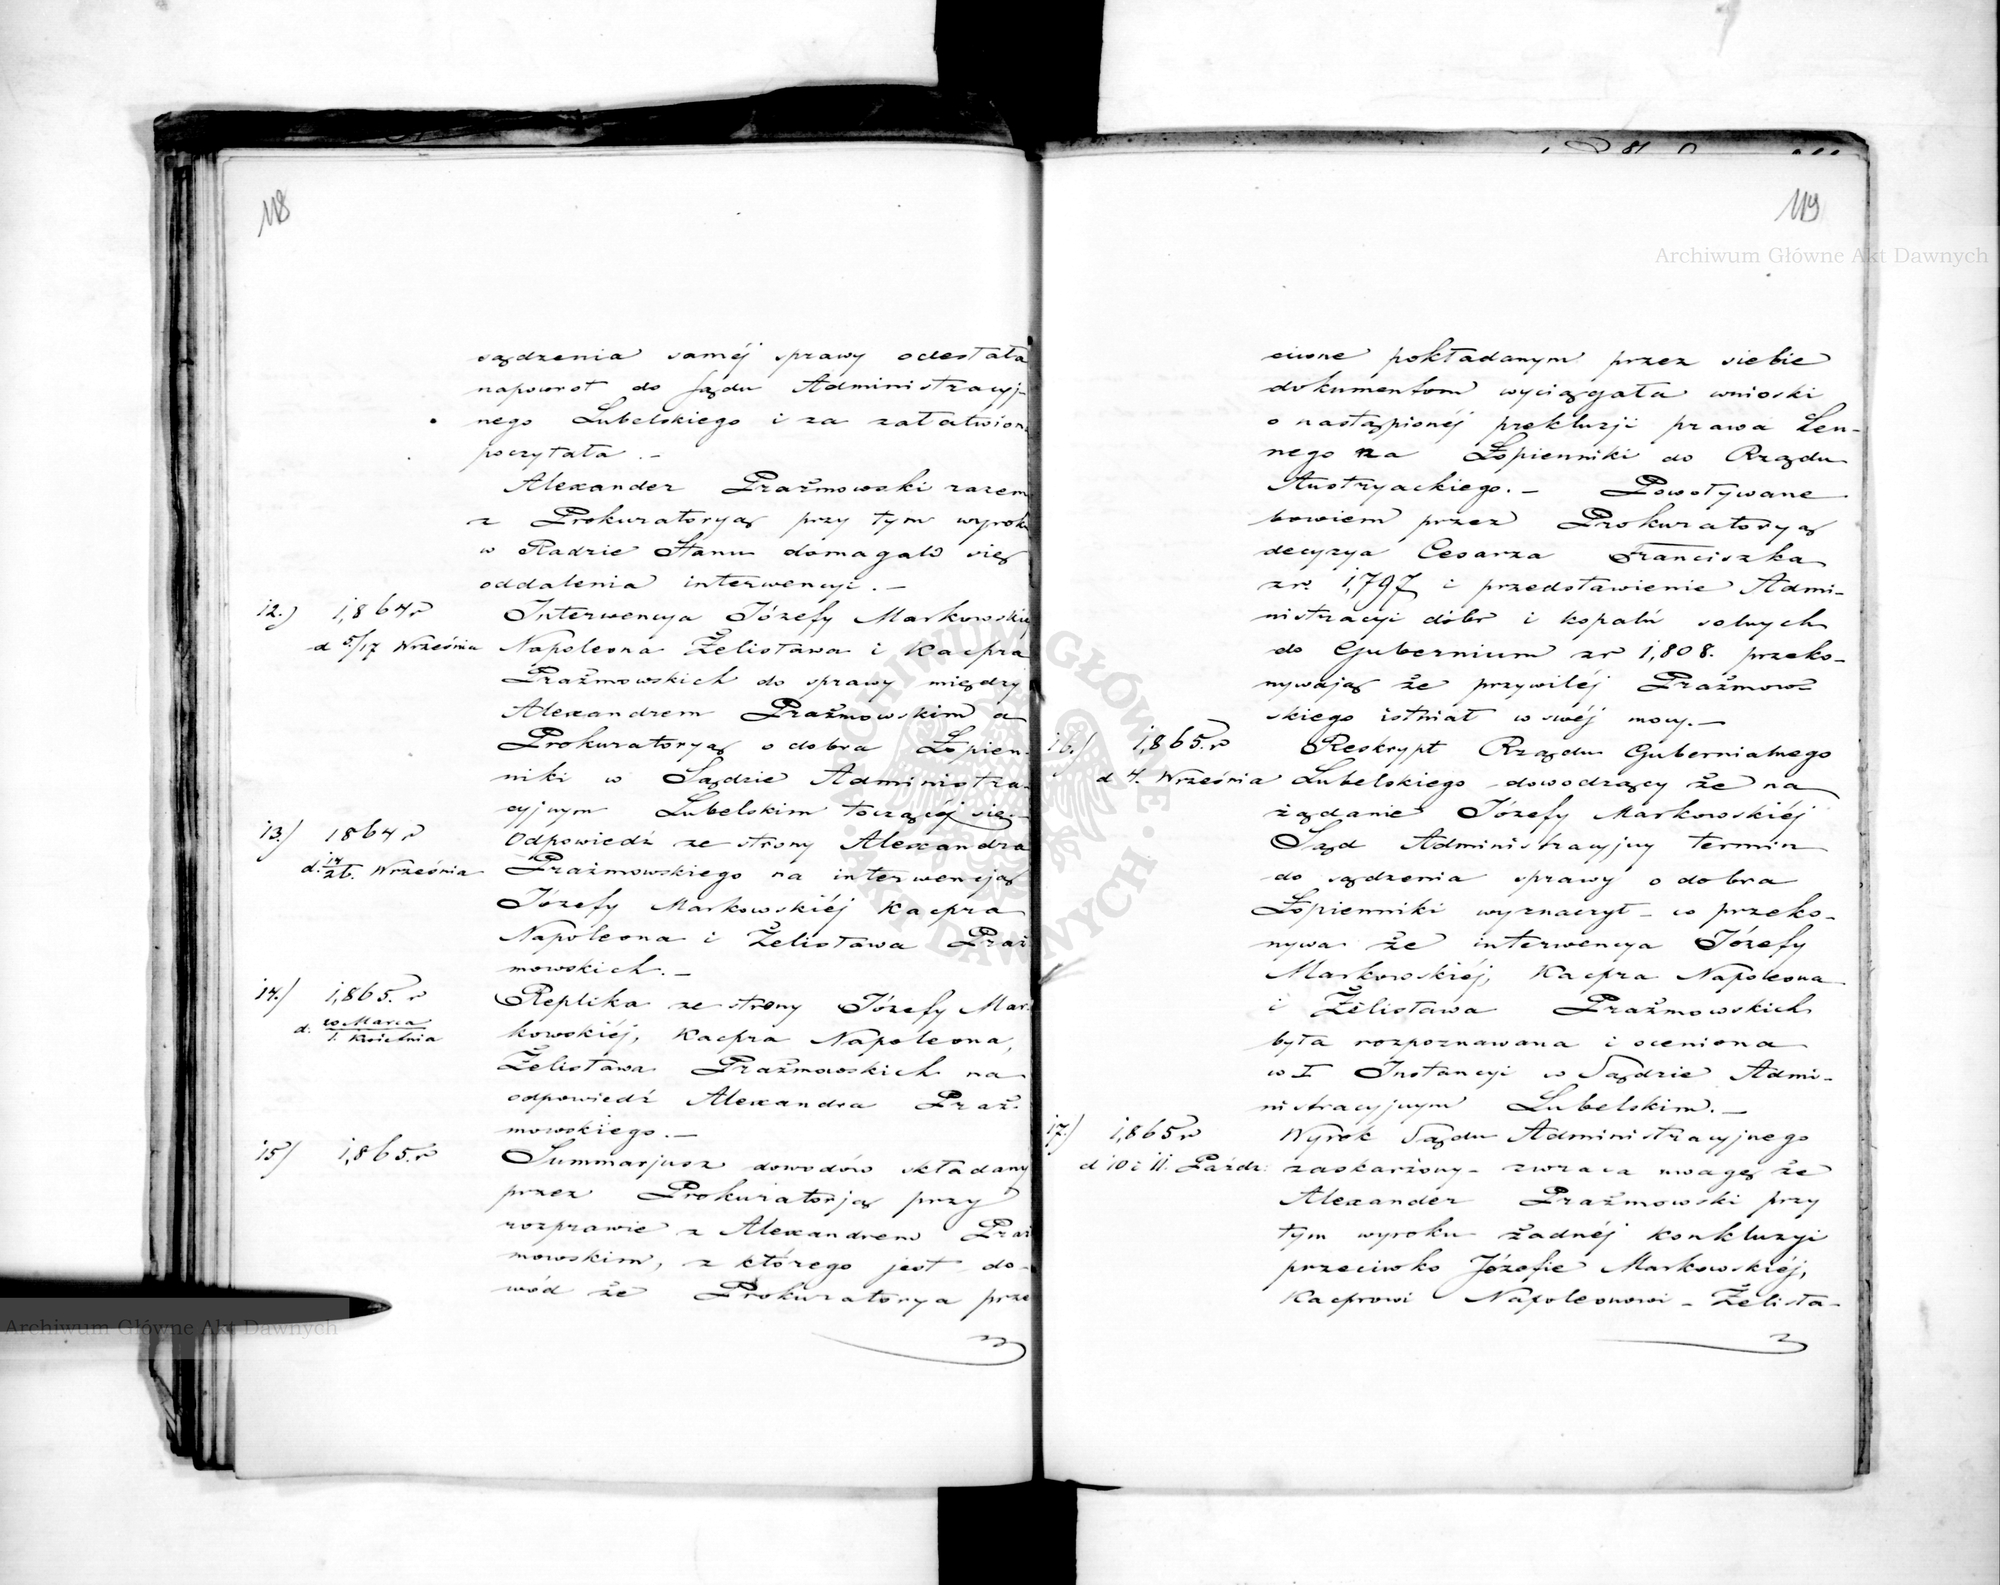 118
sądzenia saméj sprawy odesłała
napowrot do Sądu Administracyj-
nego Lubelskiego i za załatwion
poczytała. –
Alexander Prażmowski razem
z Prokuratoryą przy tym wyrok
w Radzie Stanu domagał się
oddalenia interwencyi. –
12.) 1,864 r
d 5/17 Września
Interwencya Józefy Markowskiéj
Napoleona Żelisława i Kacpra
Prażmowskich do sprawy między
Alexandrem Prażmowskim a
Prokuratoryą o dobra Łopien-
niki w Sądzie Administra-
cyjnym Lubelskim toczącéj się. –
13.) 1864 r
d. 14/26. Września
Odpowiedź ze strony Alexandra
Prażmowskiego na interwencją
Józefy Markowskiéj Kacpra
Napoleona i Żelisława Praż
mowskich. –
14.) 1,865. r
d. 20 Marca / 1. Kwietnia
Replika ze strony Józefy Mar-
kowskiéj, Kacpra Napoleona,
Żelisława Prażmowskich na
odpowiedź Alexandra Praż-
mowskiego. –
15) 1,865. r
Summarjusz dowodów składany
przez Prokuratorją przy
rozprawie z Alexandrem Praż
mowskim, z którego jest do-
wód że Prokuratorya prze
119
Archiwum Główne Akt Dawnych
ciwne pokładanym przez siebie
dokumentom wyciągała wnioski
o nastąpionéj prekluzji prawa Len-
nego za Łopienniki do Rządu
Austryackiego. – Powoływane
bowiem przez Prokuratoryą
decyzya Cesarza Franciszka
z r. 1,797 i przedstawienie Admi-
nistracyi dóbr i kopalń solnych
do Gubernium z r 1,808. przeko-
nywają że przywiléj Prażmow-
skiego istniał w swéj mocy. –
16.) 1,865. r
d 4. Września
Reskrypt Rządu Gubernialnego
Lubelskiego dowodzący że na
żądanie Józefy Markowskiéj
Sąd Administracyjny termin
do sądzenia sprawy o dobra
Łopienniki wyznaczył – co przeko-
nywa że interwencya Józefy
Markowskiéj, Kacpra Napoleona
i Żelisława Prażmowskich
była rozpoznawana i oceniona
w I Instancyi w Sądzie Admi-
nistracyjnym Lubelskim. –
17.) 1,865 r
d 10 i 11. Paźdz:
Wyrok Sądu Administracyjnego
zaskarżony – zwraca uwagę że
Alexander Prażmowski przy
tym wyroku żadnéj konkluzyi
przeciwko Józefie Markowskiéj,
Kacprowi Napoleonowi – Żelisła-
ARCHIWUM GŁÓWNE AKT DAWNYCH
Archiwum Główne Akt Dawnych